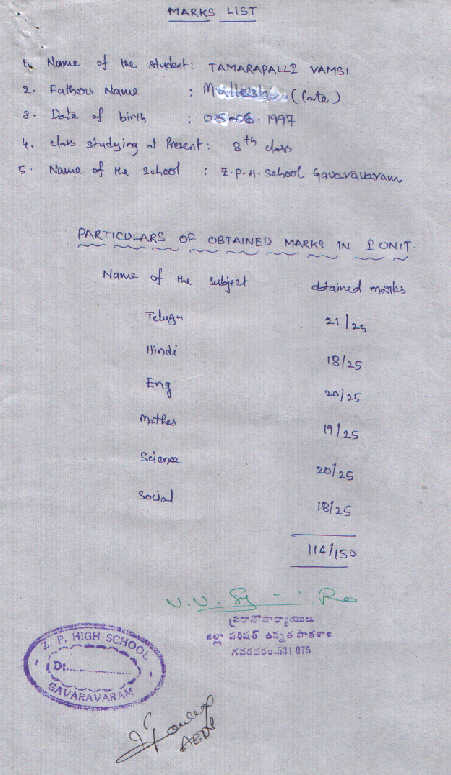 MARKS LIST
1. Name of the student: TAMARAPALLI VAMSI
2. Fathers Name : (Late)
3. Date of birth : 1997
4. class studying at Present: 8th class
5. Name of the school : Z.P.H. School Gavaravaram
PARTICULARS OF OBTAINED MARKS IN I UNIT
Name of the Subject obtained marks
Telugu 21/25
Hindi 18/25
Eng 20/25
Mathes 19/25
Science 20/25
Social 18/25
114/150
ప్రధానోపాధ్యాయులు
జిల్లా పరిషత్ ఉన్నత పాఠశాల
గవరవరం-531 075
Z. P. HIGH SCHOOL
D:
GAVARAVARAM